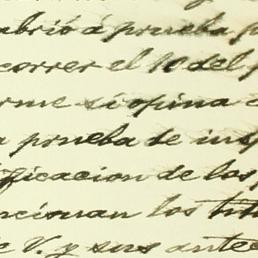 abrió á prueba p
correr el 10 del p
rme si opina c
a prueba de ins
ificacion de los
ncionan los tit
e V. y sus antec